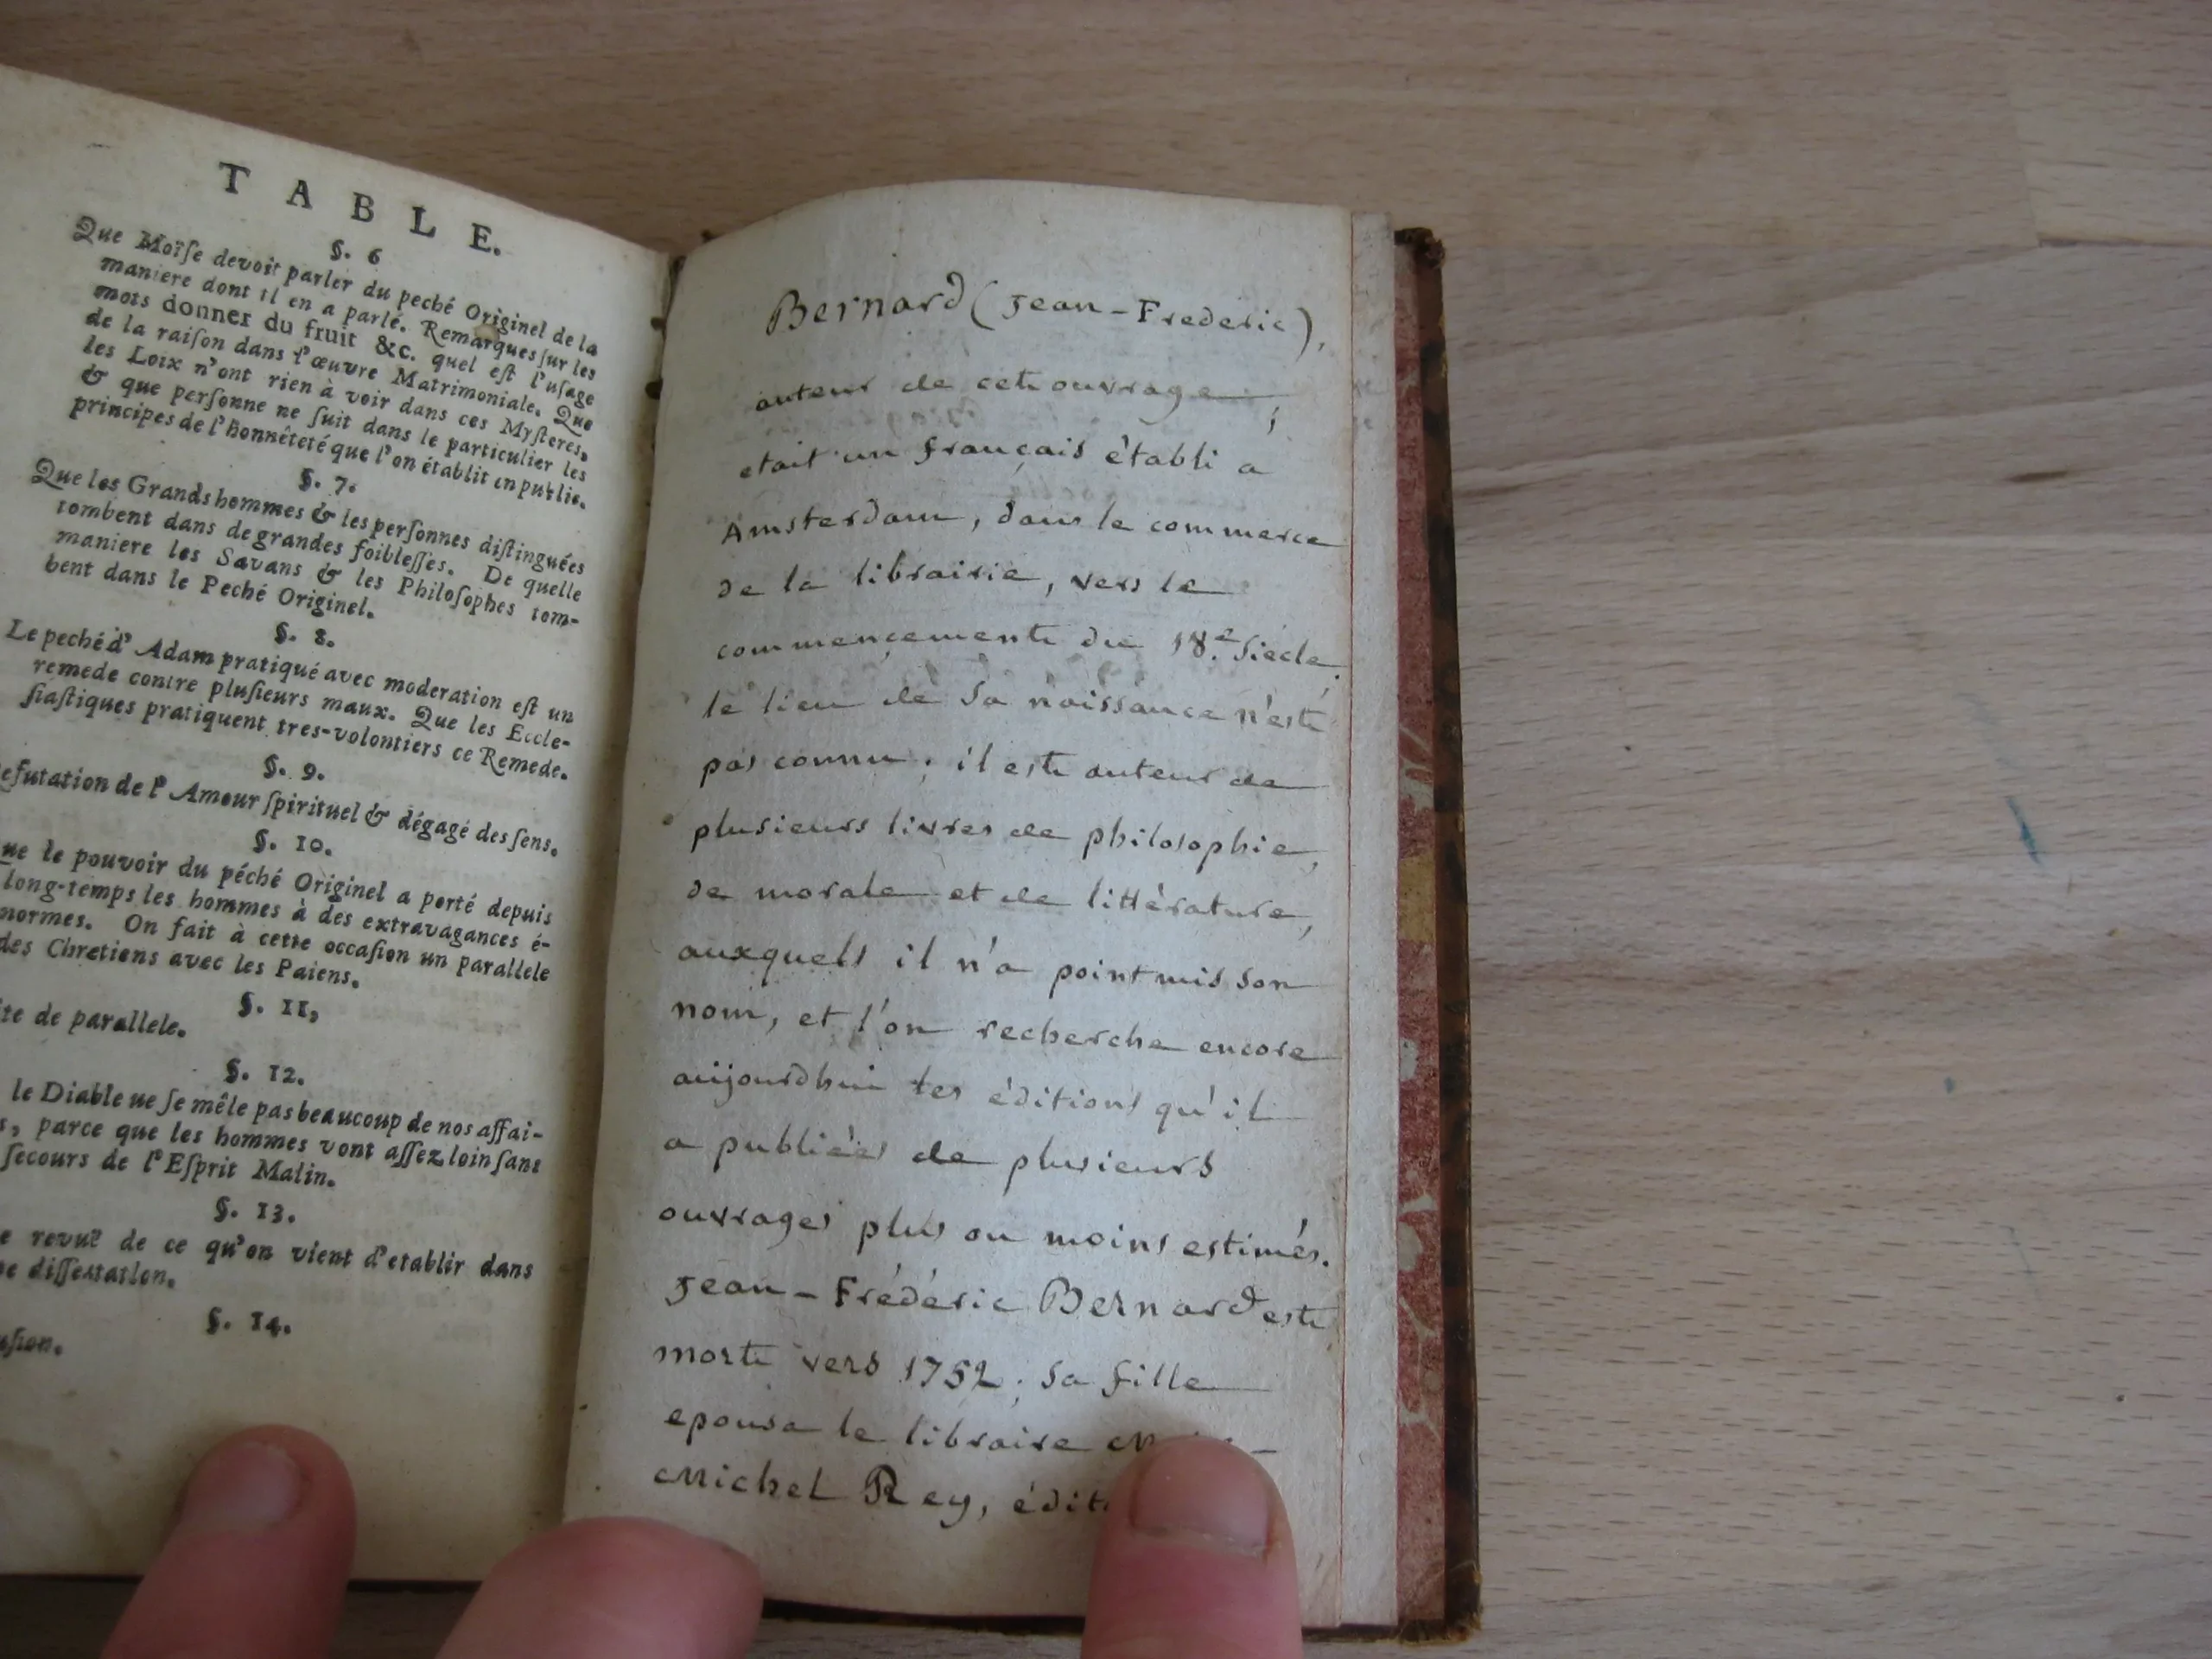 TABLE.
§. 6
Que Moïſe devoit parler du peché Originel de la
maniere dont il en a parlé. Remarques ſur les
mots donner du fruit &c. quel eſt l'uſage
de la raiſon dans l'œuvre Matrimoniale. Que
les Loix n'ont rien à voir dans ces Myſteres,
& que perſonne ne ſuit dans le particulier les
principes de l'honnêteté que l'on établit en public.
§. 7.
Que les Grands hommes & les perſonnes diſtinguées
tombent dans de grandes foibleſſes. De quelle
maniere les Savans & les Philoſophes tom-
bent dans le Peché Originel.
§. 8.
Le peché d'Adam pratiqué avec moderation eſt un
remede contre pluſieurs maux. Que les Eccle-
ſiaſtiques pratiquent tres-volontiers ce Remede.
§. 9.
efutation de l'Amour ſpirituel & dégagé des ſens.
§. 10.
ue le pouvoir du péché Originel a porté depuis
long-temps les hommes à des extravagances é-
normes. On fait à cette occaſion un parallele
des Chretiens avec les Paiens.
§. 11,
ite de parallele.
§. 12.
le Diable ne ſe mêle pas beaucoup de nos affai-
s, parce que les hommes vont aſſez loin ſans
ſecours de l'Eſprit Malin.
§. 13.
e revuë de ce qu'on vient d'etablir dans
e diſſertation.
§. 14.
uſion.
Bernard (Jean-Frederic),
auteur de cet ouvrage,
etait un français établi à
Amsterdam, dans le commerce
de la librairie, vers le
commençement du 18.e Siècle.
le lieu de sa naissance n'est
pas connu; il est auteur de
plusieurs livres de philosophie,
de morale et de littérature,
auxquels il n'a point mis son
nom, et l'on recherche encore
aujourdhui les éditions qu'il
a publiées de plusieurs
ouvrages plus ou moins estimés.
Jean-Frédéric Bernard est
mort vers 1752; sa fille
epousa le libraire
Michel Rey, édit